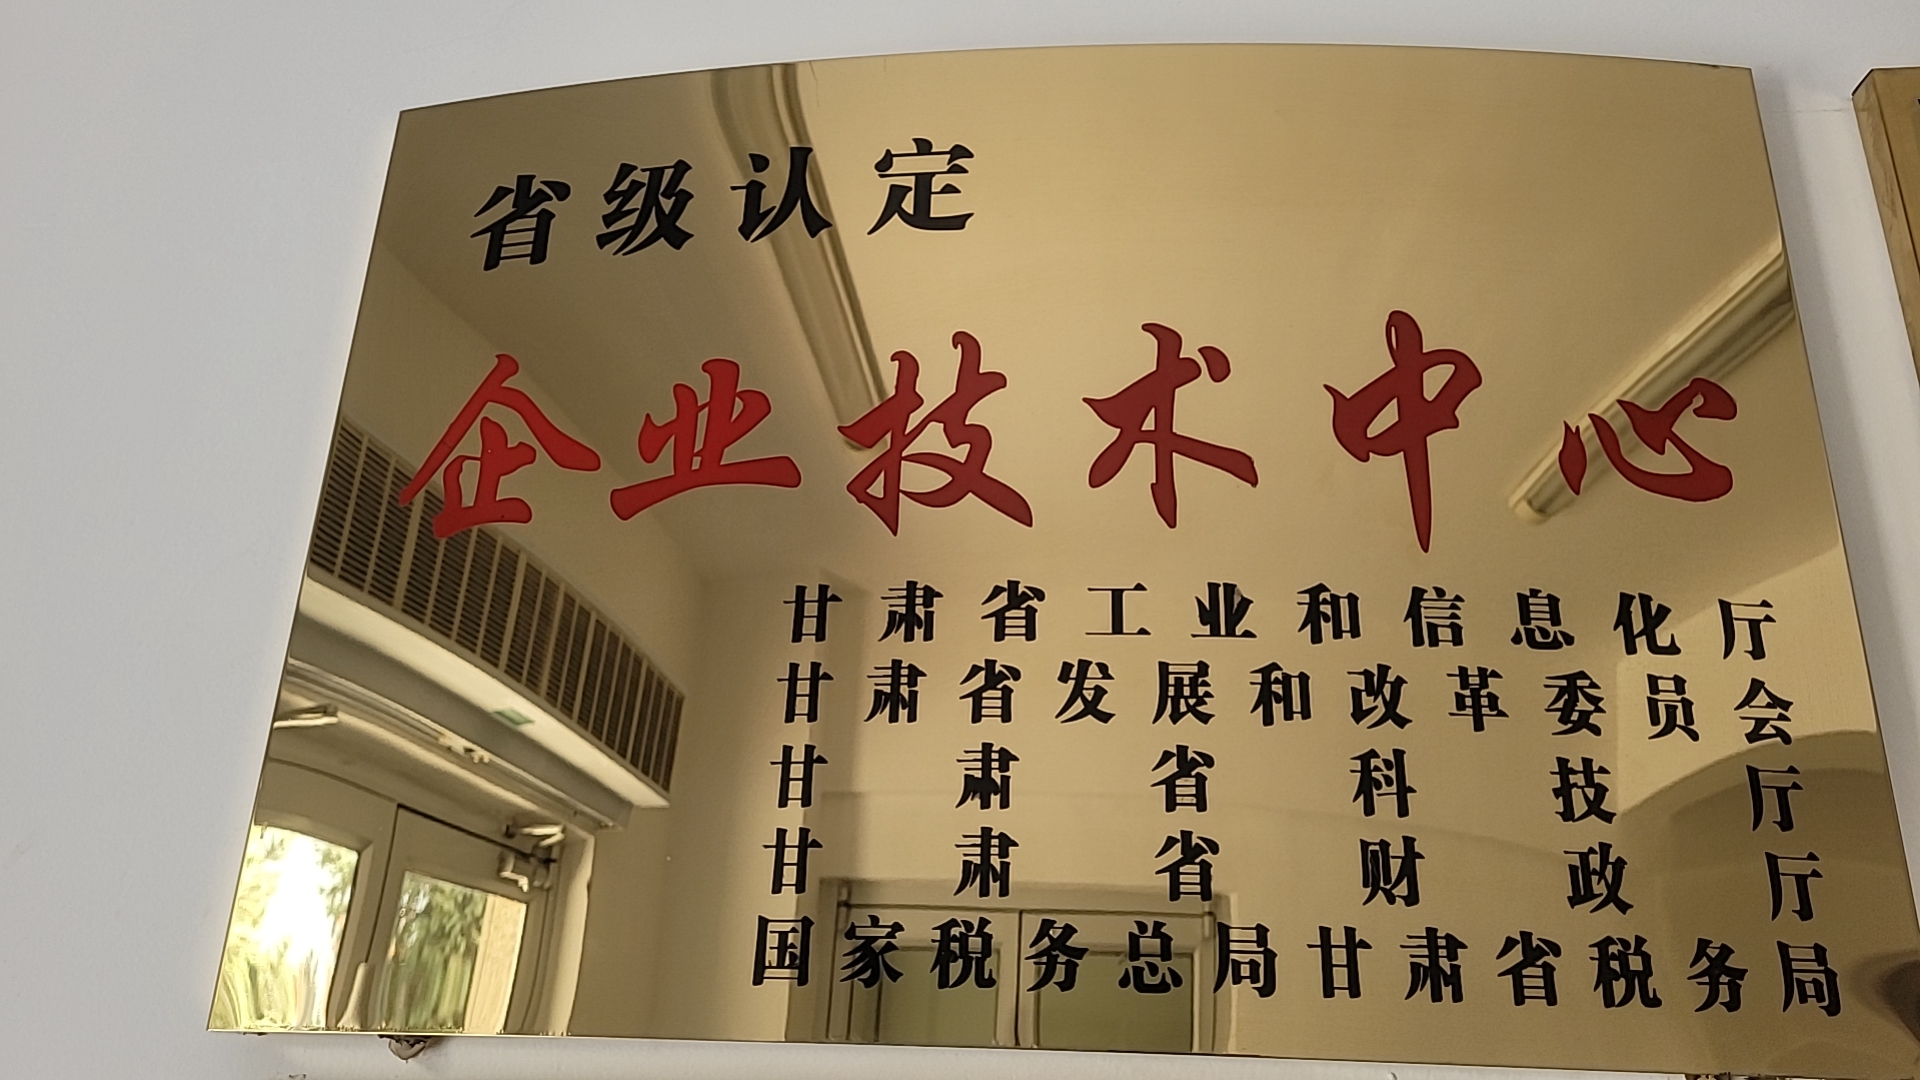 省级认定
企业技术中心
甘肃省工业和信息化厅
甘肃省发展和改革委员会
甘肃省科技厅
甘肃省财政厅
国家税务总局甘肃省税务局